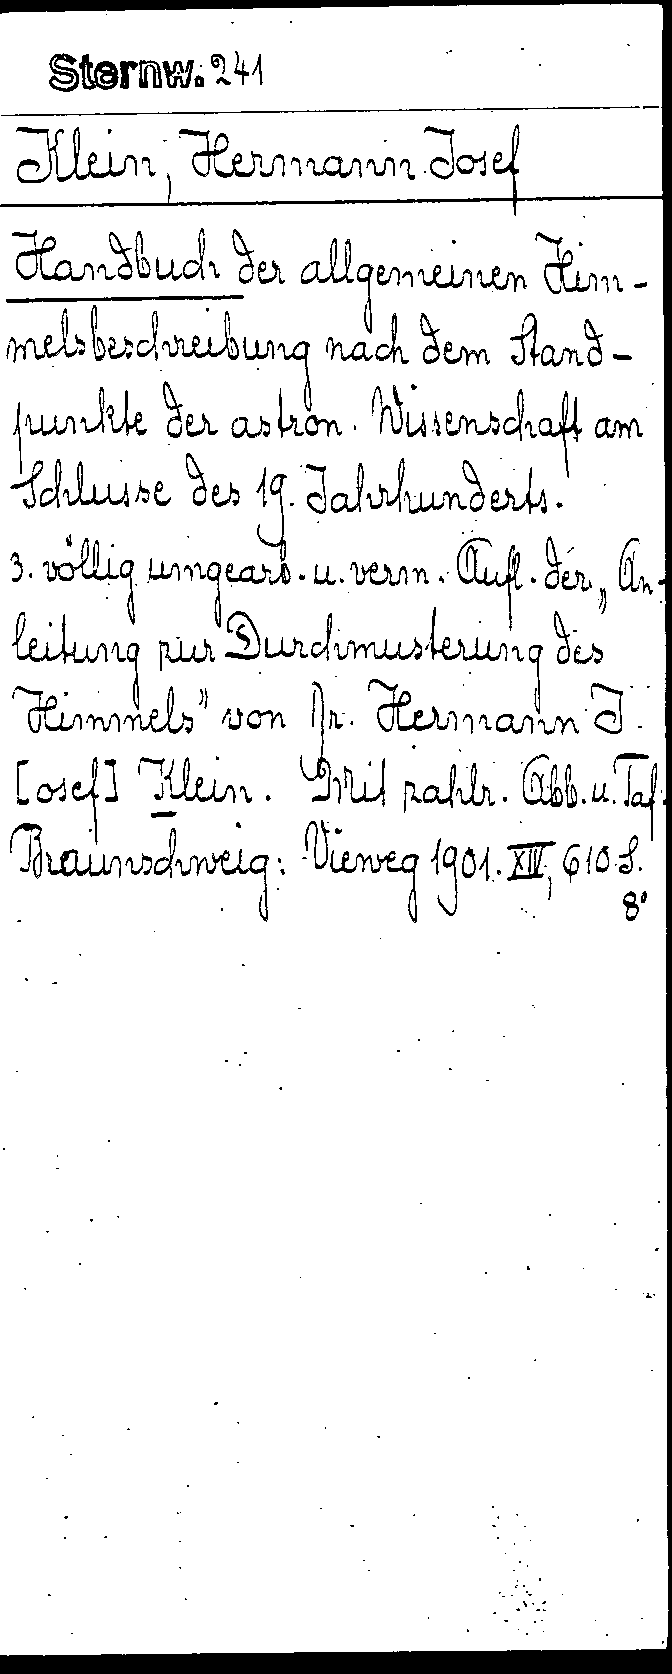 Sternw. 241
Klein, Hermann Josef
Handbuch der allgemeinen Him-
melsbeschreibung nach dem Stand-
punkte der astron. Wissenschaft am
Schlusse des 19. Jahrhunderts.
3. völlig umgearb. u. verm. Aufl. der „An-
leitung zur Durchmusterung des
Himmels" von Dr. Hermann J.
[osef] Klein. Mit zahlr. Abb. u. Taf.
Braunschweig: Vieweg 1901. XIV, 610 S.
8°